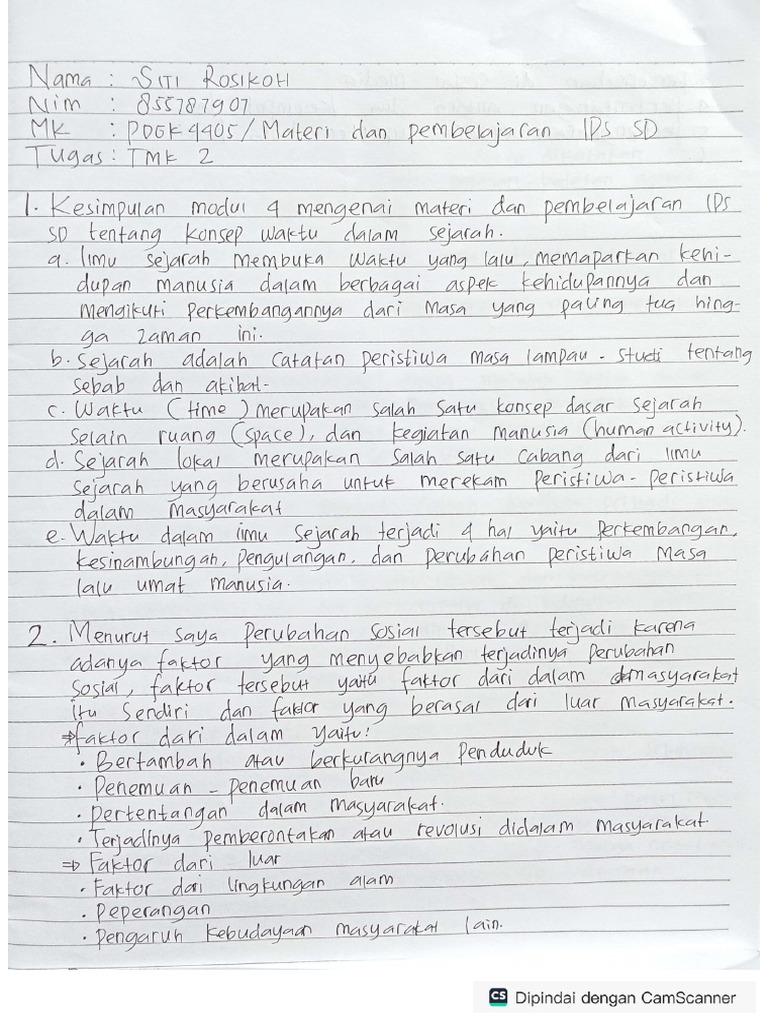 Nama : SITI ROSIKOH
Nim : 855787907
MK : PDGK4405/Materi dan pembelajaran IPS SD
Tugas : TMK 2
1. Kesimpulan modul 4 mengenai materi dan pembelajaran IPS
SD tentang konsep waktu dalam sejarah.
a. Ilmu sejarah membuka waktu yang lalu, memaparkan kehi-
dupan manusia dalam berbagai aspek kehidupannya dan
mengikuti perkembangannya dari masa yang paling tua hing-
ga zaman ini.
b. Sejarah adalah catatan peristiwa masa lampau - studi tentang
sebab dan akibat-
c. Waktu (time) merupakan salah satu konsep dasar sejarah
selain ruang (space), dan kegiatan manusia (human activity).
d. Sejarah lokal merupakan salah satu cabang dari ilmu
sejarah yang berusaha untuk merekam peristiwa-peristiwa
dalam masyarakat
e. Waktu dalam ilmu sejarah terjadi 4 hal yaitu perkembangan,
kesinambungan, pengulangan, dan perubahan peristiwa masa
lalu umat manusia.
2. Menurut saya perubahan sosial tersebut terjadi karena
adanya faktor yang menyebabkan terjadinya perubahan
sosial, faktor tersebut yaitu faktor dari dalam masyarakat
itu sendiri dan faktor yang berasal dari luar masyarakat.
⇒ faktor dari dalam yaitu:
• Bertambah atau berkurangnya penduduk
• Penemuan - penemuan baru
• Pertentangan dalam masyarakat.
• Terjadinya pemberontakan atau revolusi didalam masyarakat
⇒ Faktor dari luar
• Faktor dari lingkungan alam
• Peperangan
• Pengaruh kebudayaan masyarakat lain.
CS Dipindai dengan CamScanner